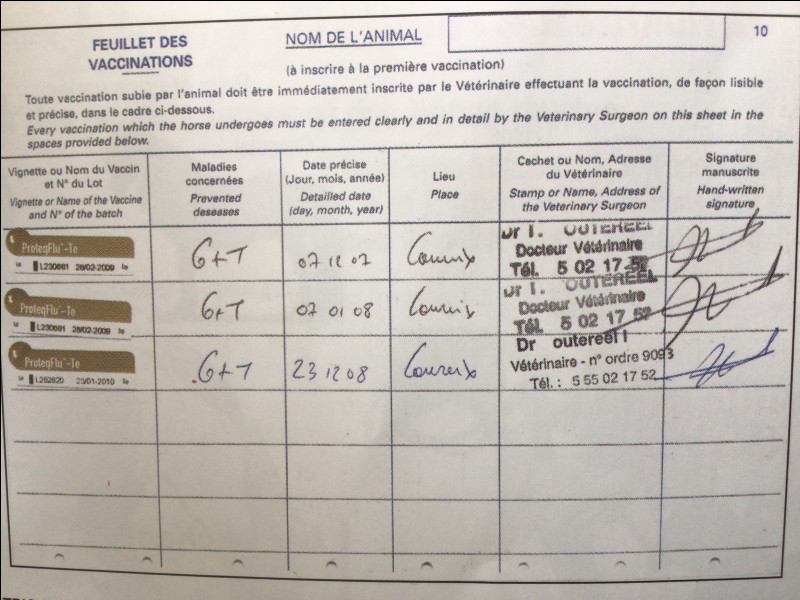 FEUILLET DES
VACCINATIONS
NOM DE L'ANIMAL
10
(à inscrire à la première vaccination)
Toute vaccination subie par l'animal doit être immédiatement inscrite par le Vétérinaire effectuant la vaccination, de façon lisible
et précise, dans le cadre ci-dessous.
Every vaccination which the horse undergoes must be entered clearly and in detail by the Veterinary Surgeon on this sheet in the
spaces provided below.
Vignette ou Nom du Vaccin
et N° du Lot
Vignette or Name of the Vaccine
and N° of the batch
Maladies
concernées
Prevented
deseases
Date précise
(Jour, mois, année)
Detailled date
(day, month, year)
Lieu
Place
Cachet ou Nom, Adresse
du Vétérinaire
Stamp or Name, Address of
the Veterinary Surgeon
Signature
manuscrite
Hand-written
signature
ProteqFlu-Te
L230681 28/02/2009
G+T
07 12 07
Dr I. OUTEREEL
Docteur Vétérinaire
Tél. 5 02 17 52
ProteqFlu-Te
L230681 28/02/2009
G+T
07 01 08
Dr I. OUTEREEL
Docteur Vétérinaire
Tél. 5 02 17 52
ProteqFlu-Te
L262620 23/01/2010
G+T
23 12 08
Dr outereel I
Vétérinaire - n° ordre 9093
Tél. : 5 55 02 17 52